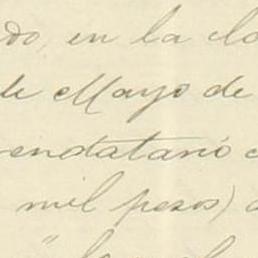 do, en la cla
de Mayo de
rendatario c
mil pesos) a